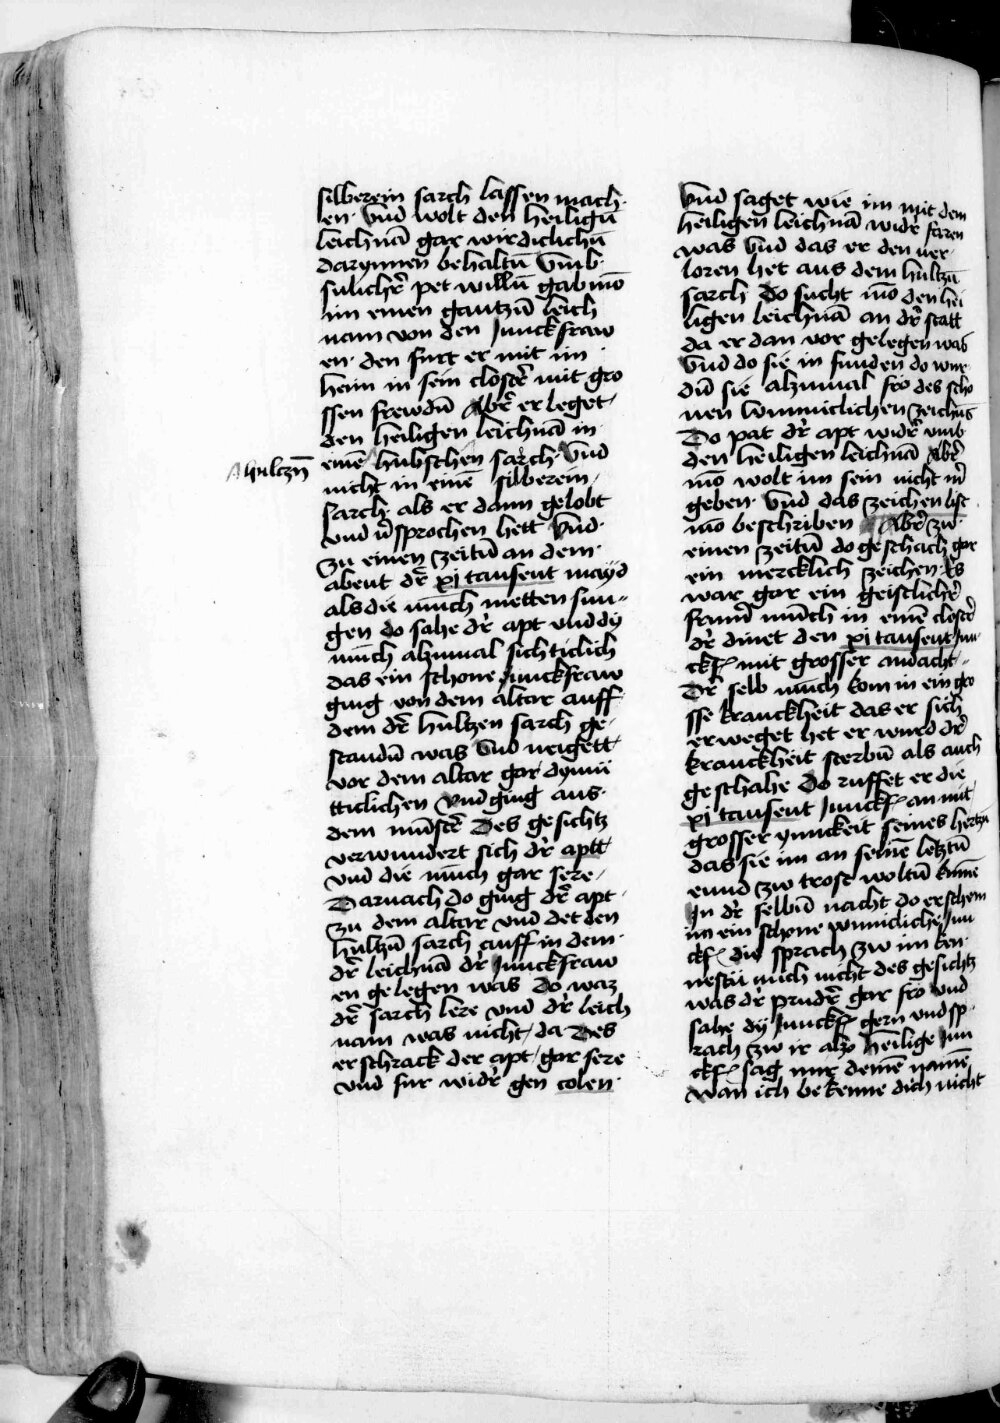 silberein sarch lassen mach
en · Vnd wolt den heiligū
leichnā gar wirdiclichū
darynnen behaltū Vmb ·
sulichr̄ pet willū gab mō
im einen gantzū leich
nam von den Junckfraw
en · den furt er mit im ·
heim in sein closter̄ mit gro
ssen frewdū Abr̄ er leget
den heiligen leichnā in
hultzn̄
einē hubschen sarch · Vnd
nicht in einē silberein
sarch · als er dann gelobt
vnd v̄sprochen hett Vnd ·
zu einen zeitū an dem ·
abent dr̄ xj tausent mayd
als die mūch metten sun-
gen do sahe dr̄ apt vnd dy
mūch alzumal sichticlich
das ein schone Junckfraw
ging von dem altar auff
dem dr̄ hultzen sarch ge-
standū was Vnd neigett
vor dem altar gar dymū
tticlichen vnd ging aus ·
dem mūster̄ Des gesichtz
verwundert sich dr̄ aptt
vnd die mūch gar sere
Darnach do ging dr̄ apt ·
zu dem altar vnd det den
hultzū sarch auff in dem ·
dr̄ leichnā dr̄ Junckfraw
en gelegen was do waz
dr̄ sarch lere vnd dr̄ leich
nam was nicht da Des
erschrack der apt gar sere
vnd fur widr̄ gen colen ·
Vnd saget wie im mit dem
heiligen leichnā widr̄ faren
was Vnd das er den ver-
loren het aus dem hultzū
sarch Do sucht mō den hei
ligen leichnā an dr̄ statt
da er dan vor gelegen was
Vnd do sie in funden do wur
dū sie alzumal fro des scho
nen wunniclichen zeichūs
Do pat dr̄ apt widr̄ vmb
den heiligen leichnā Abr̄
mō wolt im sein nicht mr̄
geben · Vnd das zeichen list
mō beschriben Abr̄ zw ·
einen zeitū do geschach gar
ein mercklich zeichen · Es
war gar ein geistlichr̄
frumr̄ mūch in einē closter̄
dr̄ dinet den xj tausent Jun
ckf mit grosser andacht
Dr̄ selb mūch kom in ein gro
sse kranckheit das er sich
erweget het er wurd dr̄
kranckheit sterbū als auch
geschahe Do ruffet er die
xj tausent Junckf an mit
grosser ynnickeit seines hertzū
das sie im an seinē letztū
eund zw trost woltū kumē
In dr̄ selbū nacht do erschein
im ein schone wunicliche Jun
ckf die sprach zw im ken ·
nestu mich nicht des gesichtz
was dr̄ prudr̄ gar fro vnd
sahe dy Junckf gern vnd sp-
rach zw ir also heilige Jun
ckf sag mir deinē namē
wan ich bekenne dich nicht